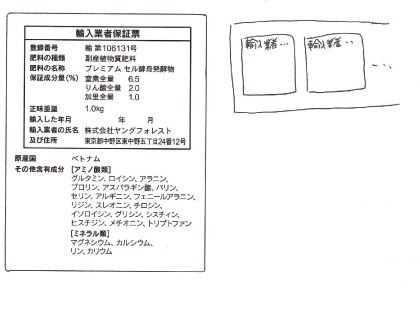 輸入業者保証票
登録番号 輸 第106131号
肥料の種類 副産植物質肥料
肥料の名称 プレミアム セル酵母発酵物
保証成分量(%) 窒素全量 6.5
りん酸全量 2.0
加里全量 1.0
正味重量 1.0kg
輸入した年月 年 月
輸入業者の氏名 株式会社ヤングフォレスト
及び住所 東京都中野区東中野五丁目24番12号
原産国 ベトナム
その他含有成分 [アミノ酸類]
グルタミン、ロイシン、アラニン、
プロリン、アスパラギン酸、バリン、
セリン、アルギニン、フェニールアラニン、
リジン、スレオニン、チロシン、
イソロイシン、グリシン、シスチィン、
ヒスチジン、メチオニン、トリプトファン
[ミネラル類]
マグネシウム、カルシウム、
リン、カリウム
輸入業者…
輸入業者…